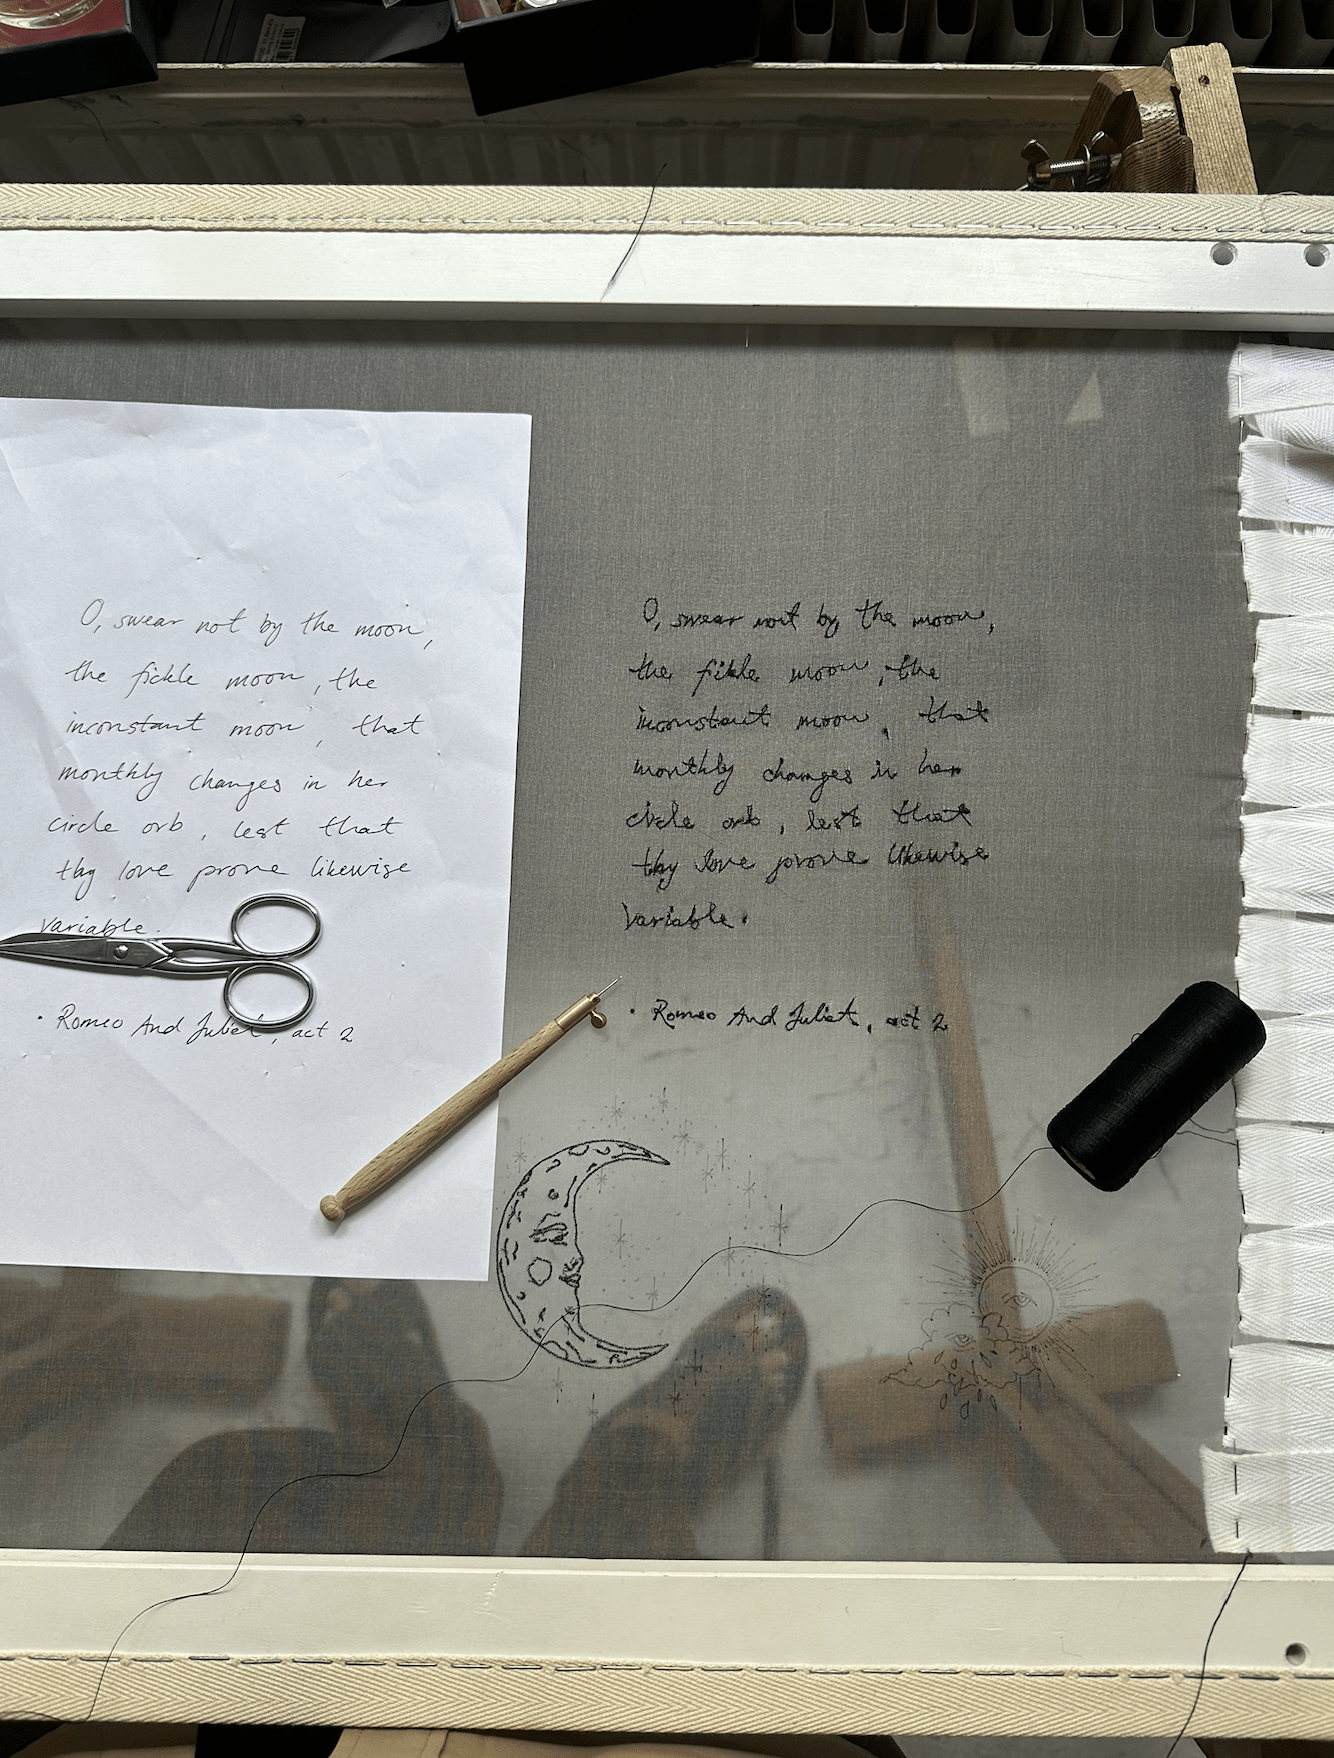 O, swear not by the moon,
the fickle moon, the
inconstant moon, that
monthly changes in her
circle orb, lest that
thy love prove likewise
variable.
• Romeo And Juliet, act 2
O, swear not by the moon,
the fikle moon, the
inconstant moon, that
monthly changes in her
circle orb, lest that
thy love prove likewise
Variable.
• Romeo And Juliet, act 2